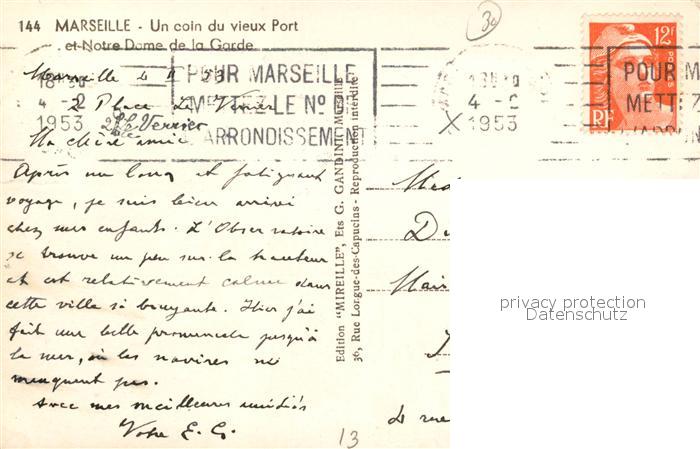 144 MARSEILLE - Un coin du vieux Port
et Notre Dame de la Garde
30
18
4 - 2
1953
POUR MARSEILLE
METTRE LE No D'
ARRONDISSEMENT
4 -
1953
12F
POSTES
RF
POUR M
METTEZ
Marseille 4 II 53
2 Place Le Verrier
Le Verrier
Ma chère amie
Après un long et fatiguant
voyage, je suis bien arrivé
chez mes enfants. L'Observatoire
se trouve un peu sur la hauteur
et est relativement calme dans
cette ville si bruyante. Hier j'ai
fait une belle promenade jusqu'à
la mer, où les navires ne
manquent pas.
Avec mes meilleures amitiés
Votre E. G.
13
Edition "MIREILLE", Ets G. GANDINI, MARSEILLE
36, Rue Lorgue-des-Capucins - Reproduction interdite
Mair
4 rue
privacy protection
Datenschutz